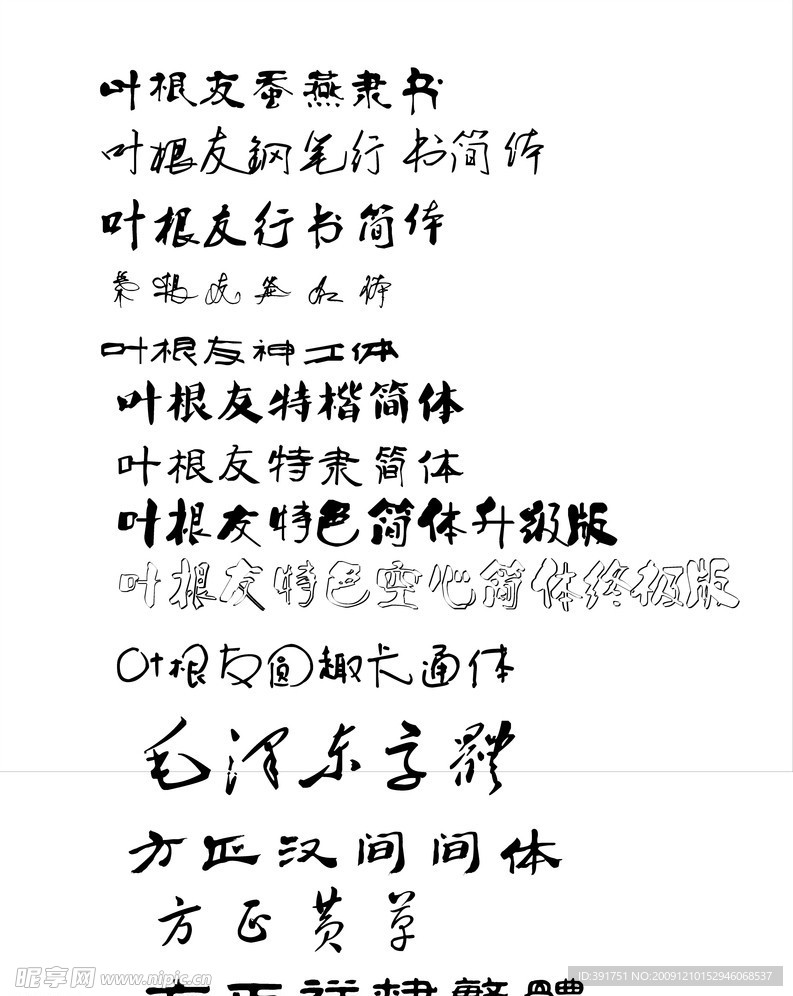 叶根友蚕燕隶书
叶根友鋼笔行书简体
叶根友行书简体
叶根友神工体
叶根友特楷简体
叶根友特隶简体
叶根友特色简体升级版
叶根友特色空心简体终极版
叶根友圆趣卡通体
毛泽东字體
方正汉间间体
方正黄草
方正祥隶繁體
昵享网 www.nipic.cn
ID:391751 NO:20091210152946068537